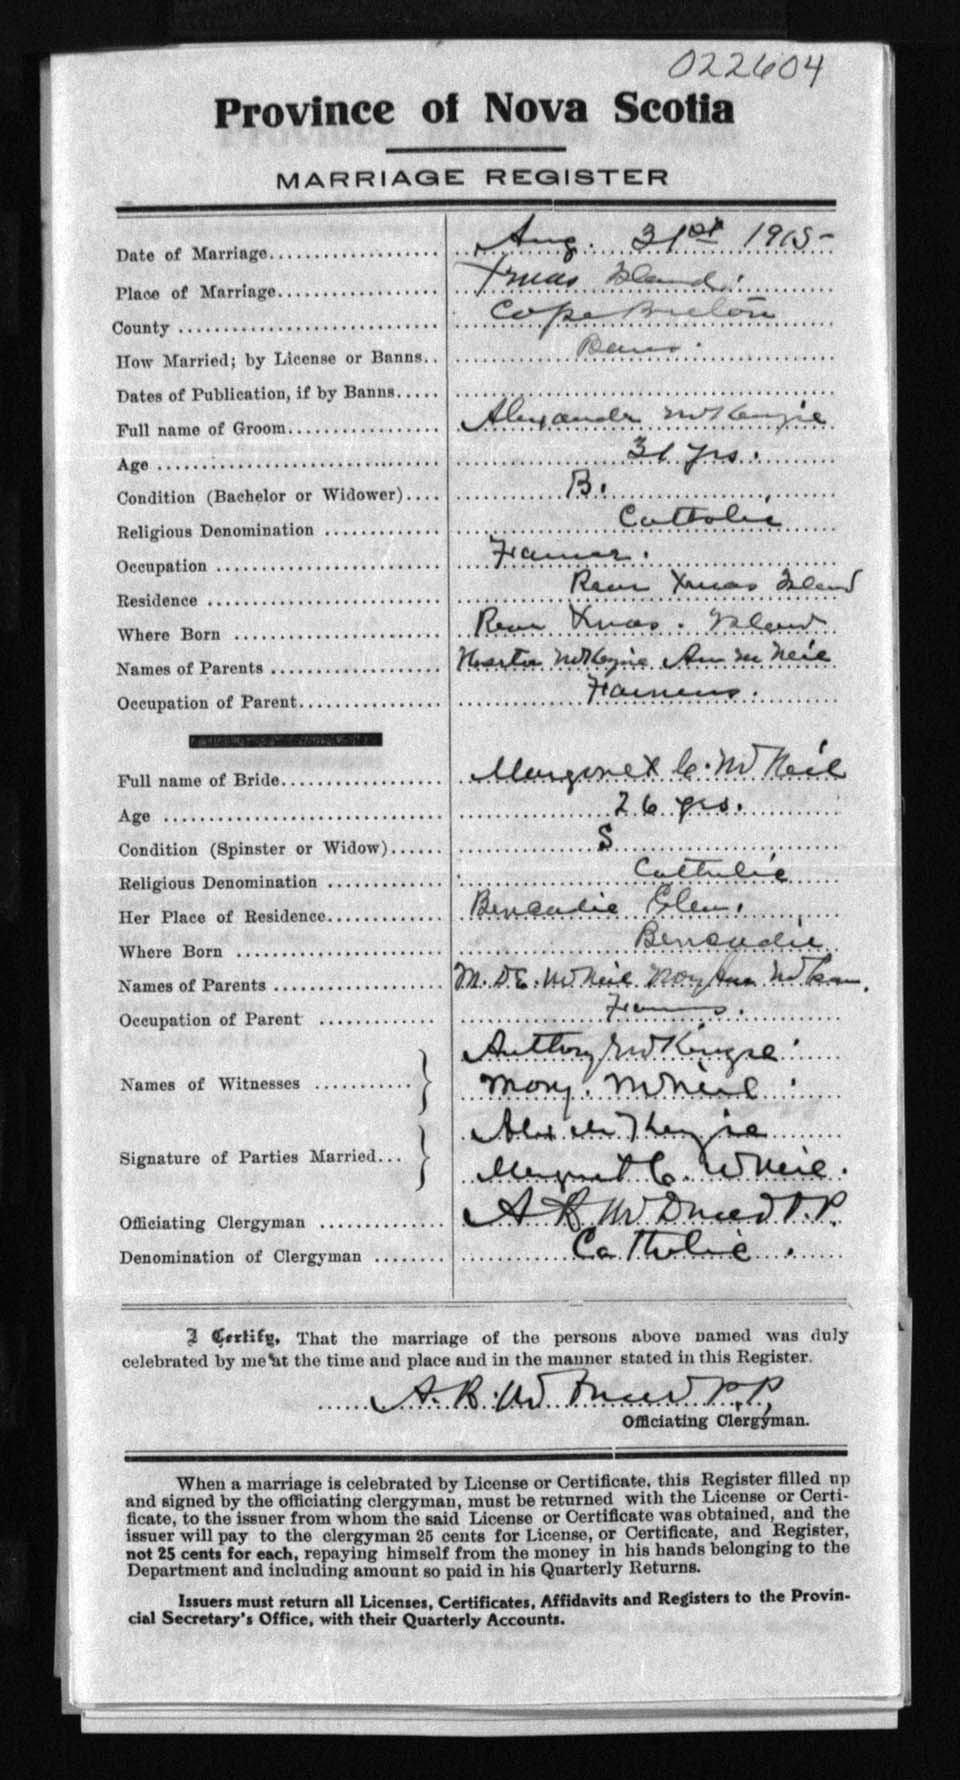 022604
Province of Nova Scotia
MARRIAGE REGISTER
Date of Marriage Aug. 31st 1915
Place of Marriage Xmas Island
County Cape Breton
How Married; by License or Banns Banns
Dates of Publication, if by Banns
Full name of Groom Alexander McKenzie
Age 31 yrs.
Condition (Bachelor or Widower) B.
Religious Denomination Catholic
Occupation Farmer.
Residence Rear Xmas Island
Where Born Rear Xmas. Island
Names of Parents Hector McKenzie Ann McNeil
Occupation of Parent Farmers.
Full name of Bride Margaret C. McNeil
Age 26 yrs.
Condition (Spinster or Widow) S
Religious Denomination Catholic
Her Place of Residence Benacadie Glen.
Where Born Benacadie
Names of Parents M. D. E. McNeil Mary Ann
Occupation of Parent Farmers.
Names of Witnesses Anthony McKenzie
Mary McNeil
Signature of Parties Married Alex McKenzie
Margaret C. McNeil.
Officiating Clergyman A R McDonald P.P.
Denomination of Clergyman Catholic.
I Certify, That the marriage of the persons above named was duly
celebrated by me at the time and place and in the manner stated in this Register.
A. R. McDonald P.P.
Officiating Clergyman.
When a marriage is celebrated by License or Certificate, this Register filled up
and signed by the officiating clergyman, must be returned with the License or Certi-
ficate, to the issuer from whom the said License or Certificate was obtained, and the
issuer will pay to the clergyman 25 cents for License, or Certificate, and Register,
not 25 cents for each, repaying himself from the money in his hands belonging to the
Department and including amount so paid in his Quarterly Returns.
Issuers must return all Licenses, Certificates, Affidavits and Registers to the Provin-
cial Secretary's Office, with their Quarterly Accounts.